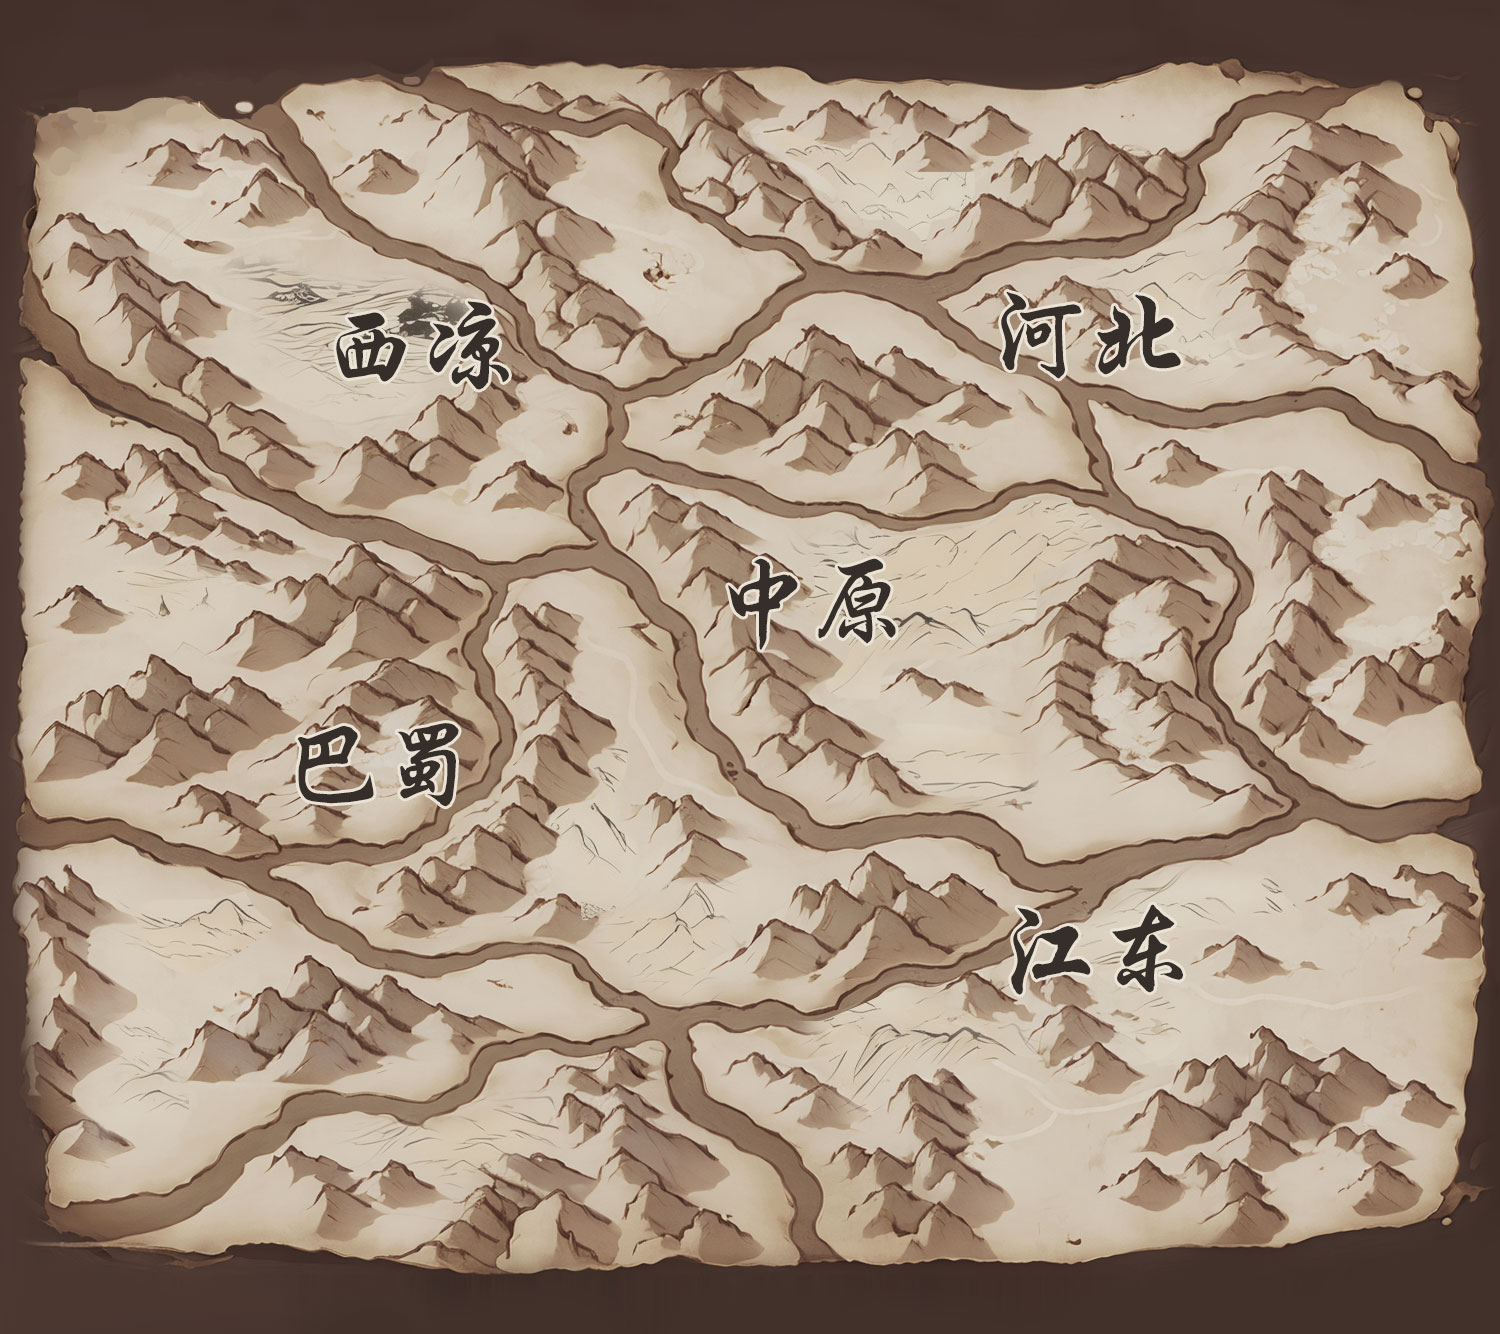 西凉
河北
中原
巴蜀
江东